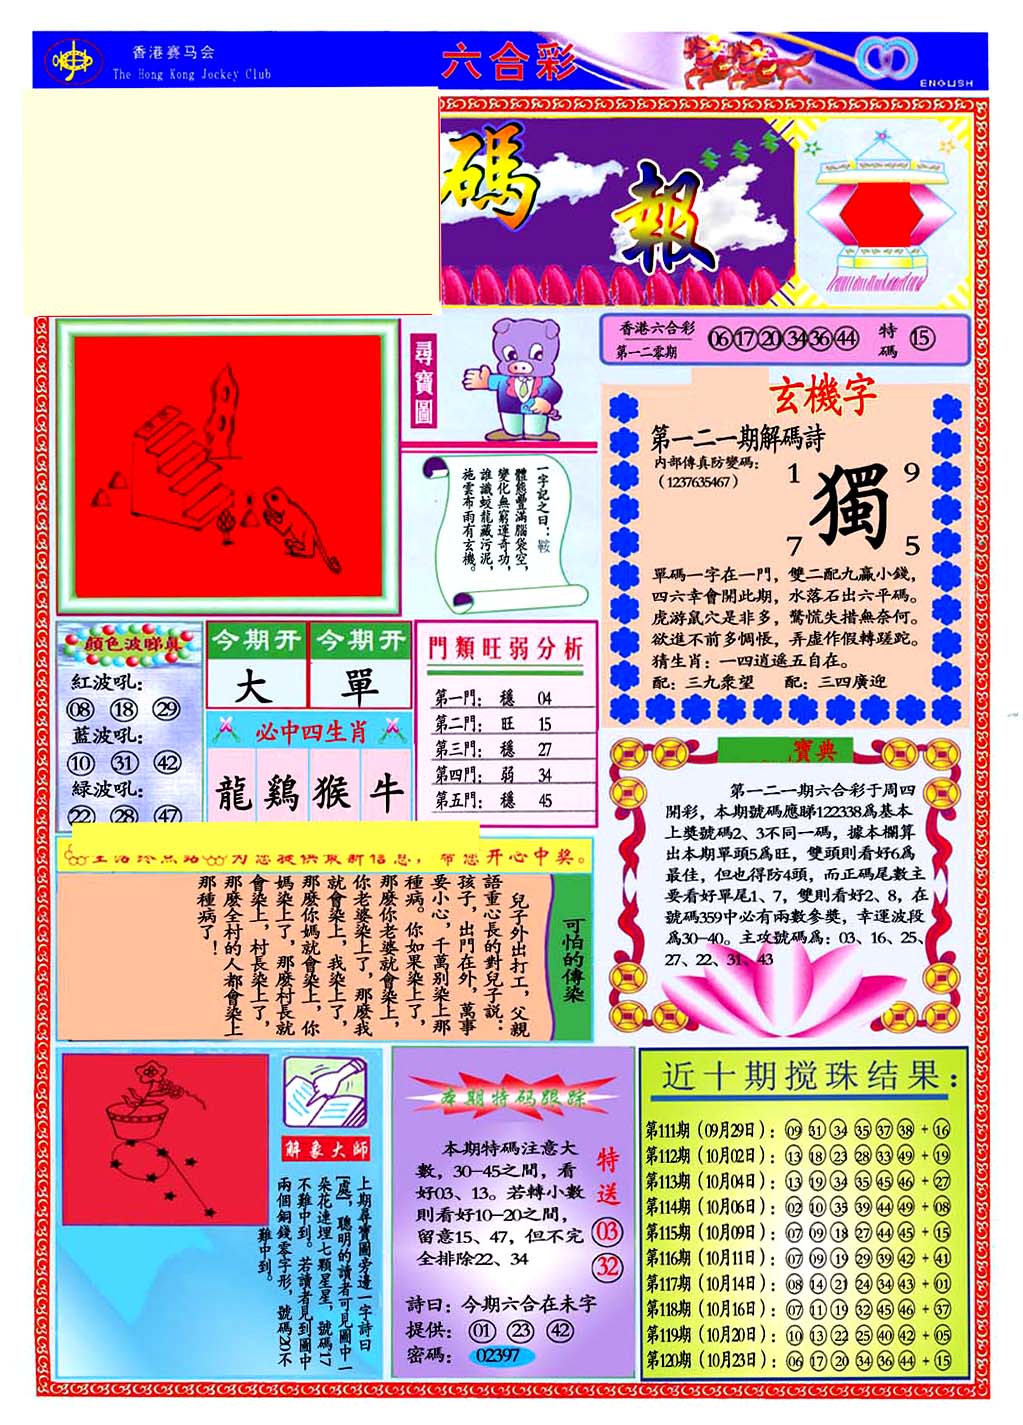 香港赛马会
The Hong Kong Jockey Club
六合彩
ENGLISH
碼 報
尋寶圖
香港六合彩
第一二零期
06 17 20 34 36 44
特碼 15
玄機字
第一二一期解碼詩
内部傳真防變碼:
(1237635467)
1 9
獨
7 5
單碼一字在一門，雙二配九贏小錢，
四六幸會開此期，水落石出六平碼。
虎游鼠穴是非多，驚慌失措無奈何。
欲進不前多惆悵，弄虚作假轉蹉蛇。
猜生肖：一四逍遥五自在。
配：三九衆望 配：三四廣迎
一字記之曰：鞍
體態豐滿腦袋空，
變化無窮運奇功，
誰識蛟龍藏污泥，
施雲布雨有玄機。
顔色波睇真
紅波吼：
08 18 29
藍波吼：
10 31 42
緑波吼：
22 28 47
今期开 今期开
大 單
必中四生肖
龍 鷄 猴 牛
門類旺弱分析
第一門： 穩 04
第二門： 旺 15
第三門： 穩 27
第四門： 弱 34
第五門： 穩 45
寶典
第一二一期六合彩于周四
開彩，本期號碼應睇122338爲基本
上奬號碼2、3不同一碼，據本欄算
出本期單頭5爲旺，雙頭則看好6爲
最佳，但也得防4頭，而正碼尾數主
要看好單尾1、7，雙則看好2、8，在
號碼359中必有兩數參奬，幸運波段
爲30-40。主攻號碼爲：03、16、25、
27、22、31、43
为您提供最新信息，帮您开心中奖。
可怕的傳染
兒子外出打工，父親
語重心長的對兒子説：
孩子，出門在外，萬事
要小心，千萬别染上那
種病。你如果染上了，
那麽你老婆就會染上，
你老婆染上了，那麽我
就會染上，我染上了，
那麽你媽就會染上，你
媽染上了，那麽村長就
會染上，村長染上了，
那麽全村的人都會染上
那種病了！
解象大師
上期尋寶圖旁邊一字詩曰
[處]，聰明的讀者可見圖中一
朵花連理七顆星星，號碼17
不難中到。若讀者見到圖中
兩個銅錢零字形，號碼20不
難中到。
本期特码跟踪
本期特碼注意大
數，30-45之間，看
好03、13。若轉小數
則看好10-20之間，
留意15、47，但不完
全排除22、34
特送
03
32
詩曰：今期六合在未字
提供： 01 23 42
密碼： 02397
近十期搅珠结果：
第111期（09月29日）：09 31 34 35 37 38 + 16
第112期（10月02日）：13 18 23 28 33 49 + 19
第113期（10月04日）：13 19 34 35 45 46 + 27
第114期（10月06日）：02 10 35 39 44 49 + 08
第115期（10月09日）：07 09 18 27 44 45 + 15
第116期（10月11日）：07 09 19 29 39 42 + 41
第117期（10月14日）：08 14 21 24 34 43 + 01
第118期（10月16日）：07 11 19 32 45 46 + 37
第119期（10月20日）：10 13 22 25 40 42 + 05
第120期（10月23日）：06 17 20 34 36 44 + 15